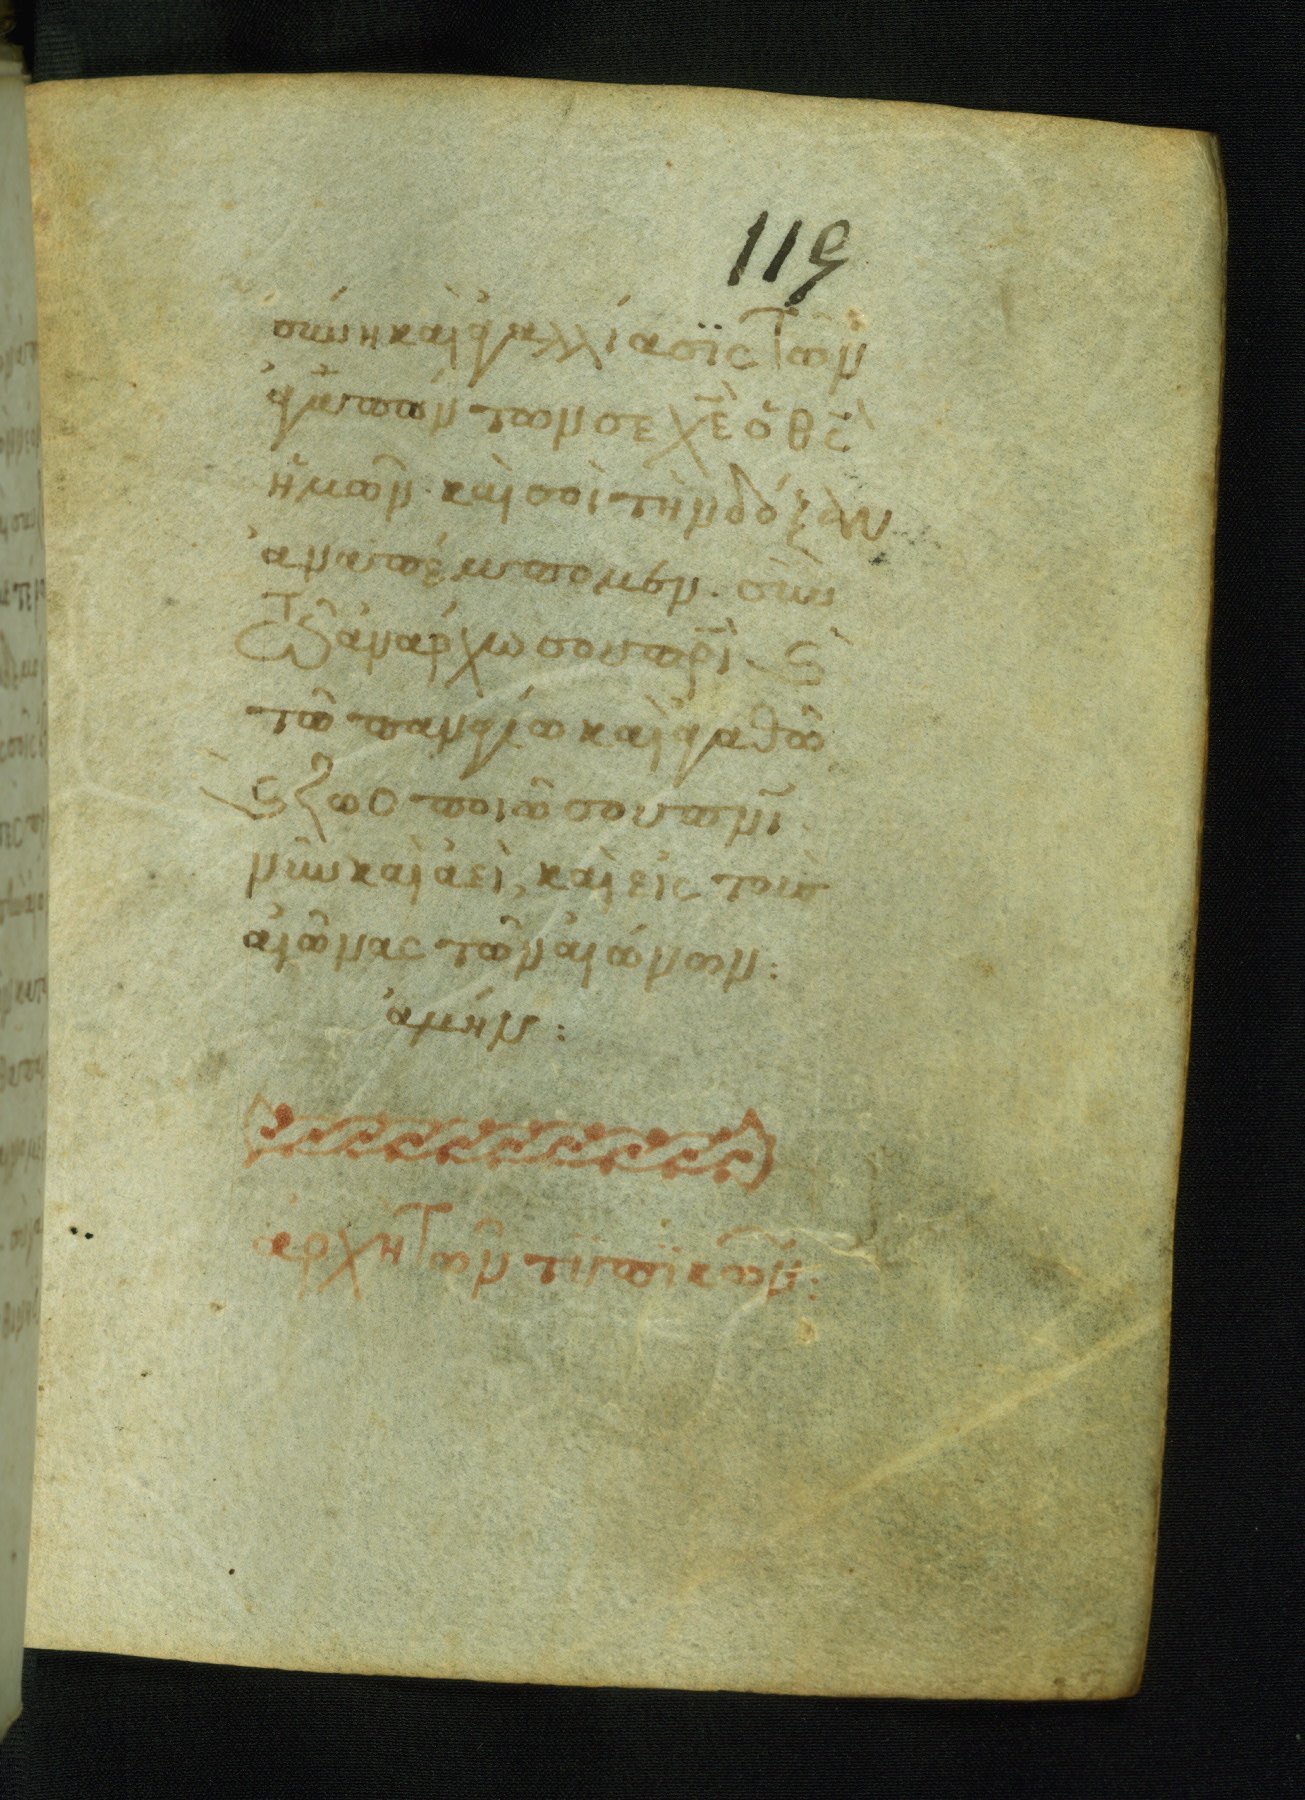 119
σύνη καὶ ἀγαλλίασϊς τῶν
ἀγαπώντων σε χ̅ε̅ ὁ θ̅ς̅
ἡμῶν· καὶ σοὶ τὴν δόξαν
ἀναπέμπομεν. σὺν
τῶ ἀνάρχω σου π̅ρ̅ι̅ ϗ
τῶ παναγίω καὶ ἀγαθῶ
ϗ ζωοποιῶ σου π̅ν̅ι̅.
νῦν καὶ ἀεὶ, καὶ εἰς τοὺς
αἰῶνας τῶν αἰώνων:
ἀμήν:
ἀρχὴ τῶν τϋπϊκῶν: